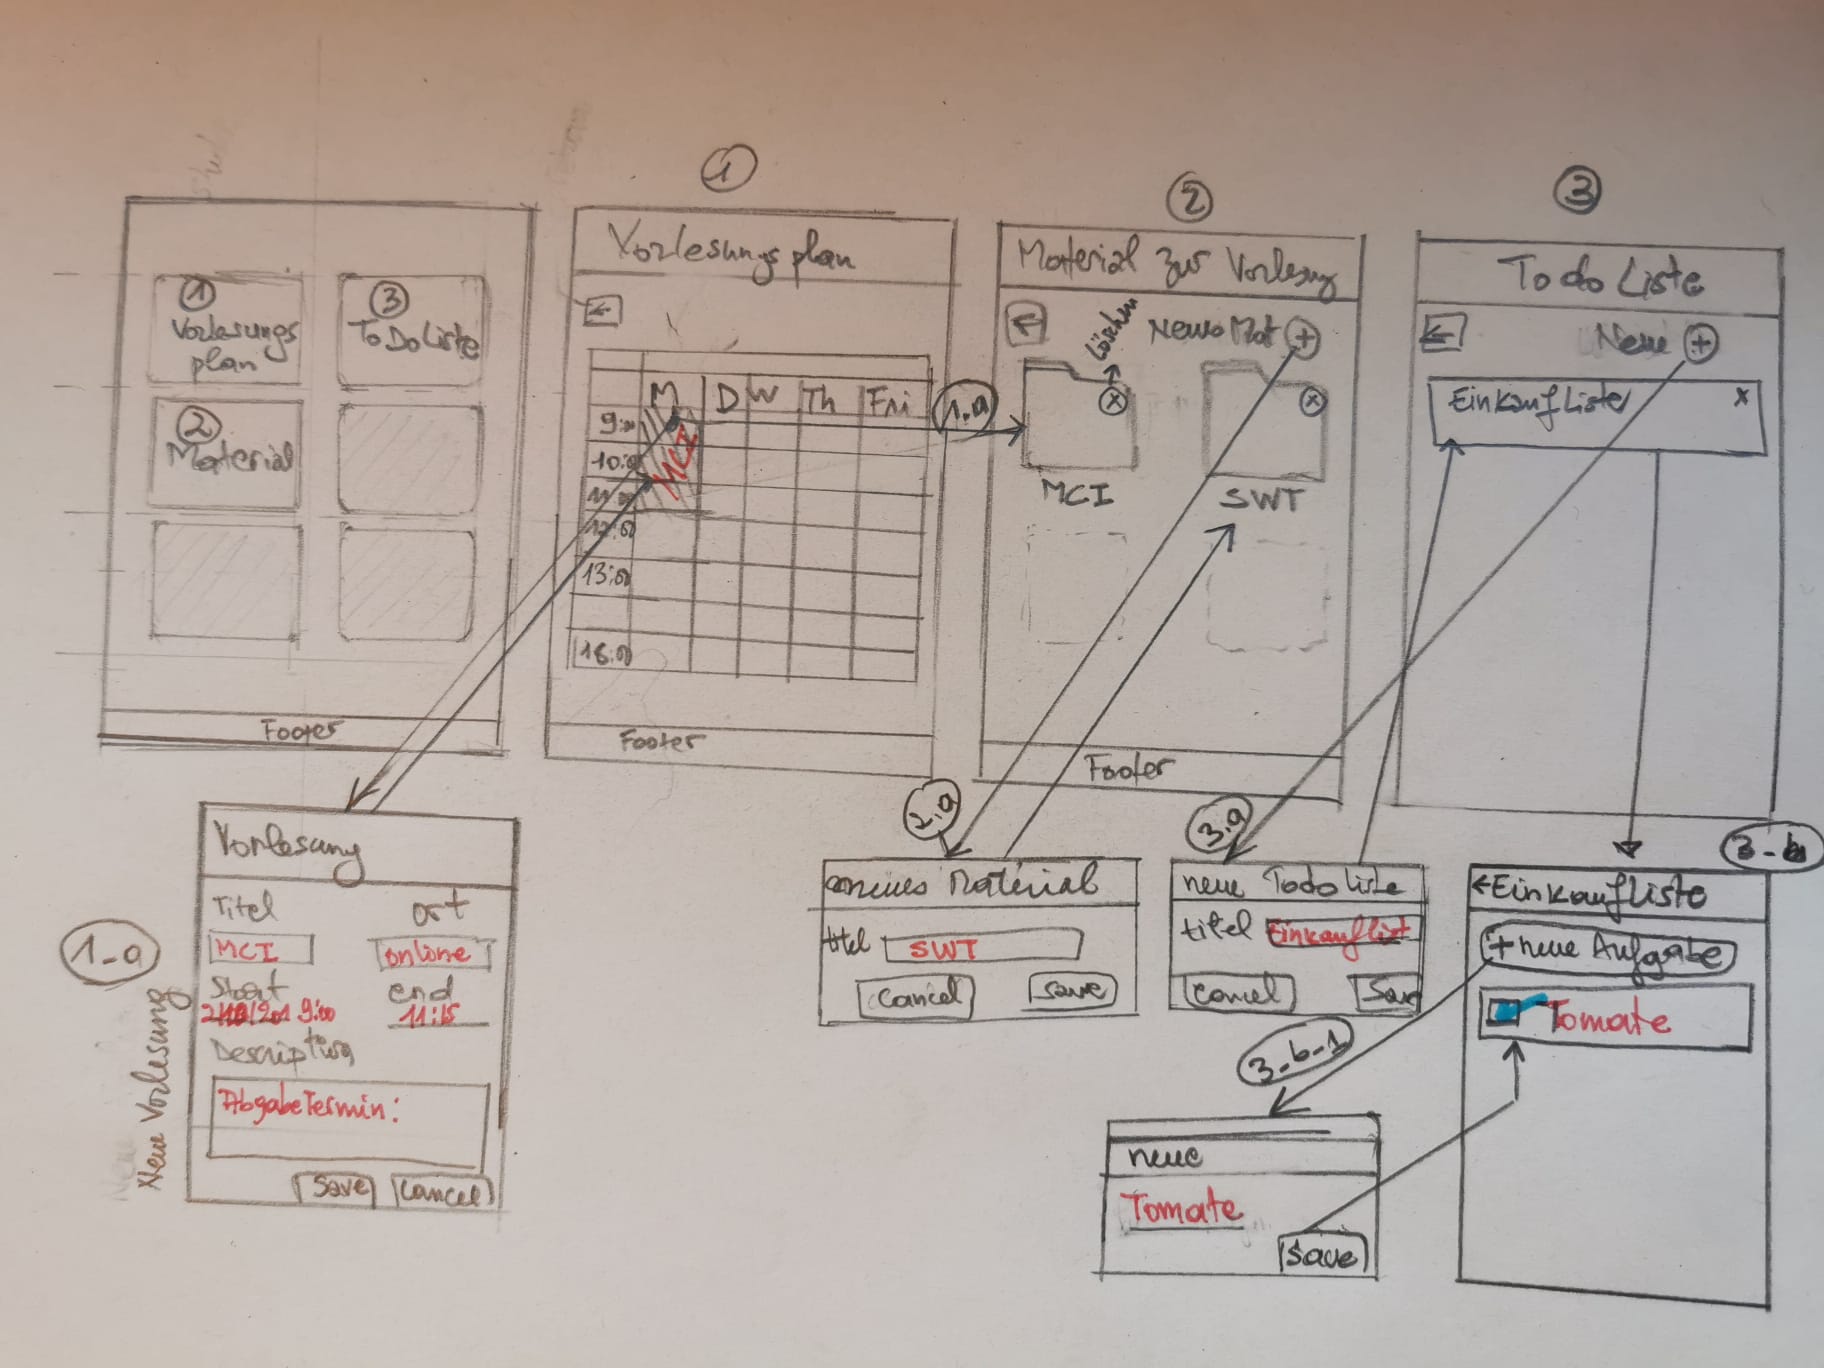 1
2
3
1
Vorlesungs
plan
3
ToDoListe
2
Material
Footer
Vorlesungsplan
←
M D W Th Fri
9:00
10:00
11:00
12:00
13:00
18:00
MCI
Footer
1.a
Material zur Vorlesung
←
Löschen
Neues Mat +
x
x
MCI
SWT
Footer
To do Liste
←
Neue +
Einkauf Liste x
1_a
Neue Vorlesung
Vorlesung
Titel ort
MCI online
Start end
9:00 11:15
Description
AbgabeTermin:
Save Cancel
2.a
neues Material
titel SWT
Cancel Save
3.a
neue Todo liste
titel Einkauflist
Cancel Save
3_b
←Einkaufliste
+ neue Aufgabe
Tomate
3_b_1
neue
Tomate
Save